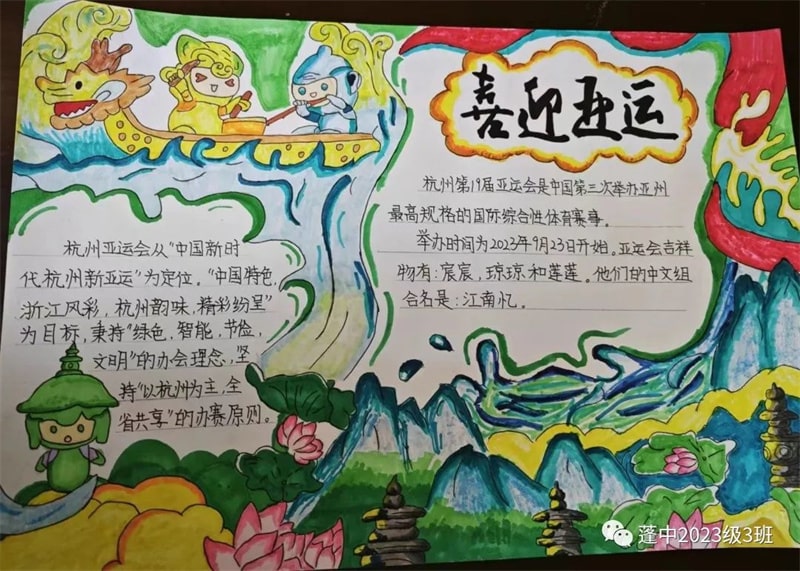 喜迎亚运
杭州第19届亚运会是中国第三次举办亚州
最高规格的国际综合性体育赛事。
举办时间为2023年9月23日开始。亚运会吉祥
物有:宸宸,琼琼和莲莲。他们的中文组
合名是:江南忆。
杭州亚运会从"中国新时
代杭州新亚运"为定位。"中国特色,
浙江风彩,杭州韵味,精彩纷呈"
为目标,秉持"绿色,智能,节俭,
文明"的办会理念,坚
持"以杭州为主,全
省共享"的办赛原则。
蓬中2023级3班